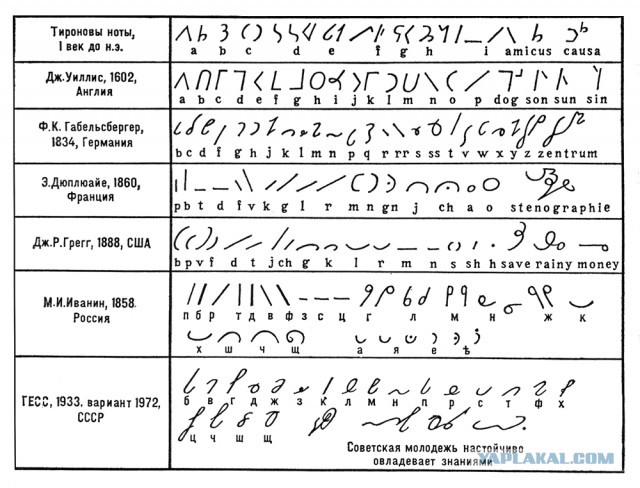 Тироновы ноты,
I век до н.э.
a b c d e f g h i amicus causa
Дж.Уиллис, 1602,
Англия
a b c d e f g h i j k l m n o p dog son sun sin
Ф.К. Габельсбергер,
1834, Германия
b c d f g h j k l m n p q r rr s ss t v w x y z zentrum
Э.Дюплюайе, 1860,
Франция
p b t d f v k g l r m n gn j ch a o stenographie
Дж.Р.Грегг, 1888, США
b p v f d t j ch g k l r m n s sh h save rainy money
М.И.Иванин, 1858.
Россия
п б р т д в ф з с ц г л м н ж к
х ш ч щ а я е ѣ
ГЕСС, 1933. вариант 1972,
СССР
б в г д ж з к л м н п р с т ф х
ц ч ш щ
Советская молодежь настойчиво
овладевает знаниями
YAPLAKAL.COM